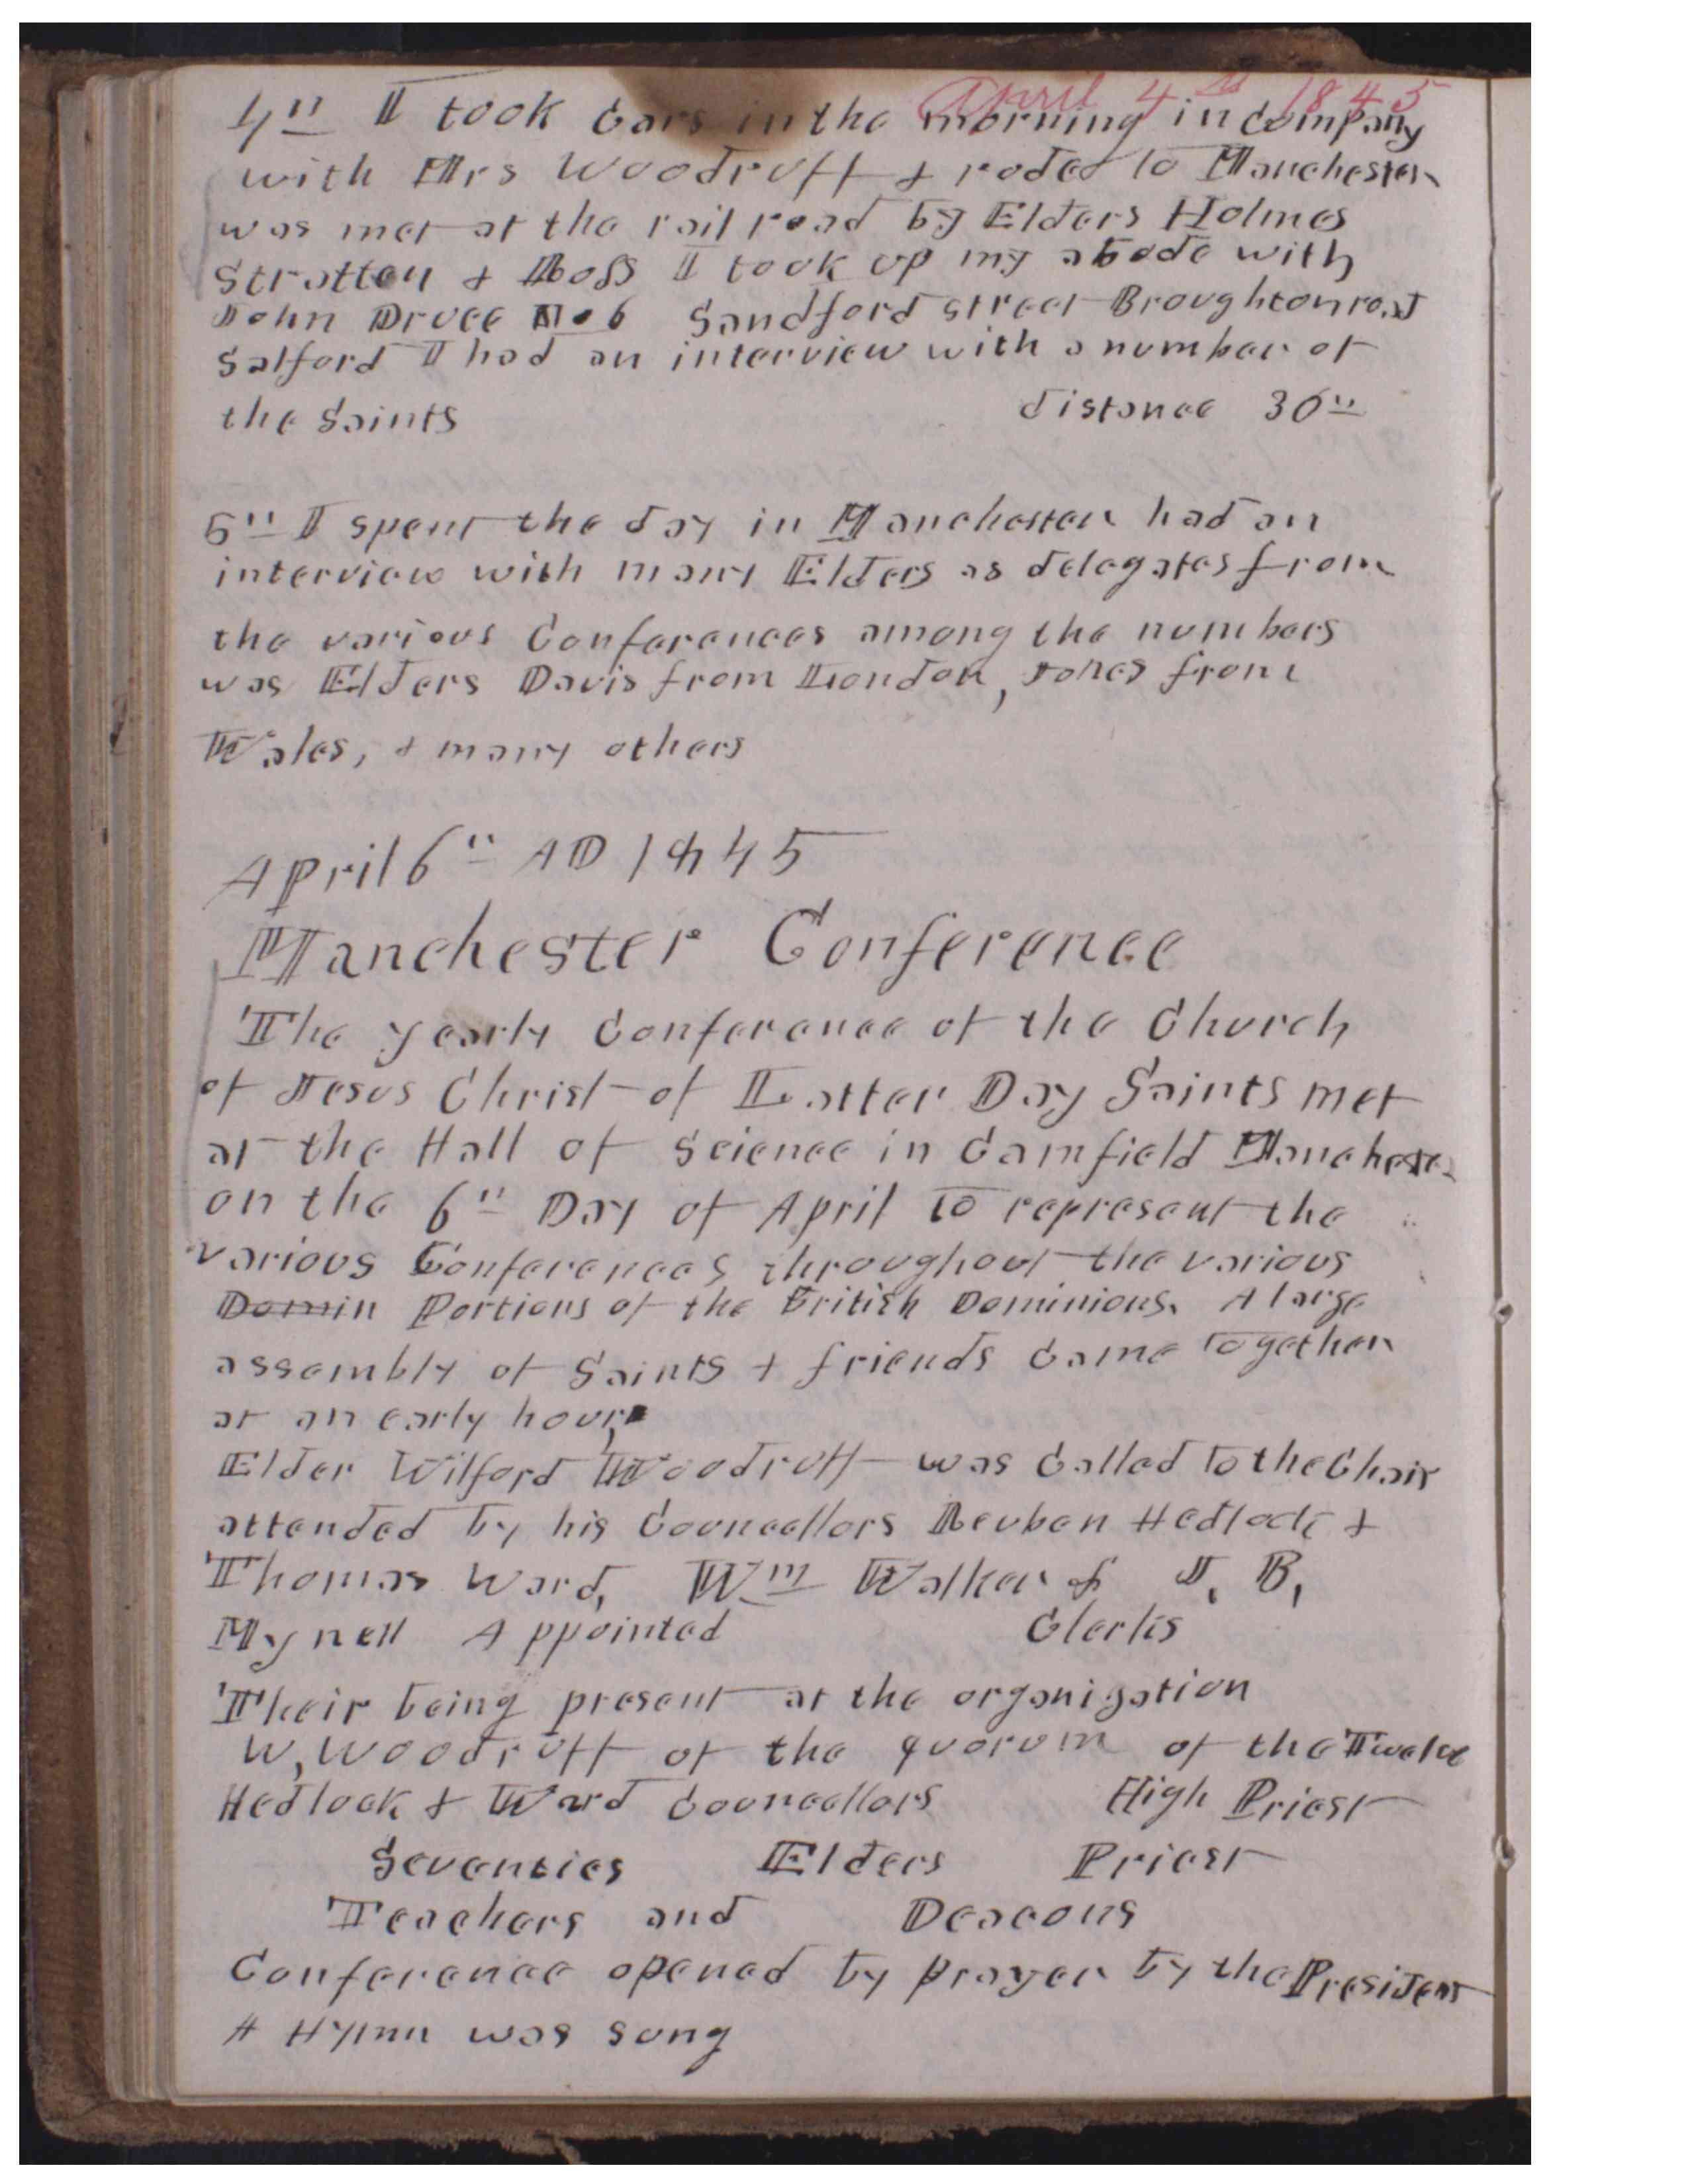 April 4th 1845
4th I took Cars in the morning in company
with Mrs Woodruff & rode to Manchester
was met at the rail road by Elders Holmes
Stratton & Ross I took up my abode with
John Druce No 6 Sandford street Broughton road
Salford I had an interview with a number of
the Saints distance 30m
5th I spent the day in Manchester had an
interview with many Elders as delegates from
the various Conferences among the numbers
was Elders Davis from London, Jones from
Wales, & many others
April 6th AD 1845
Manchester Conference
The yearly Conference of the Church
of Jesus Christ of Latter Day Saints met
at the Hall of Science in Camfield Manchester
on the 6th Day of April to represent the
various Conferences throughout the various
Domin Portions of the British Dominions. A large
assembly of Saints & friends Came together
at an early hour,
Elder Wilford Woodruff was Called to the Chair
attended by his Councellors Reuben Hedlock &
Thomas Ward, Wm Walker & J, B,
Mynell Appointed Clerks
Their being present at the organization
W, Woodruff of the quorum of the Twelve
Hedlock & Ward Councellors High Priest
Seventies Elders Priest
Teachers and Deacons
Conference opened by prayer by the President
A Hymn was sung